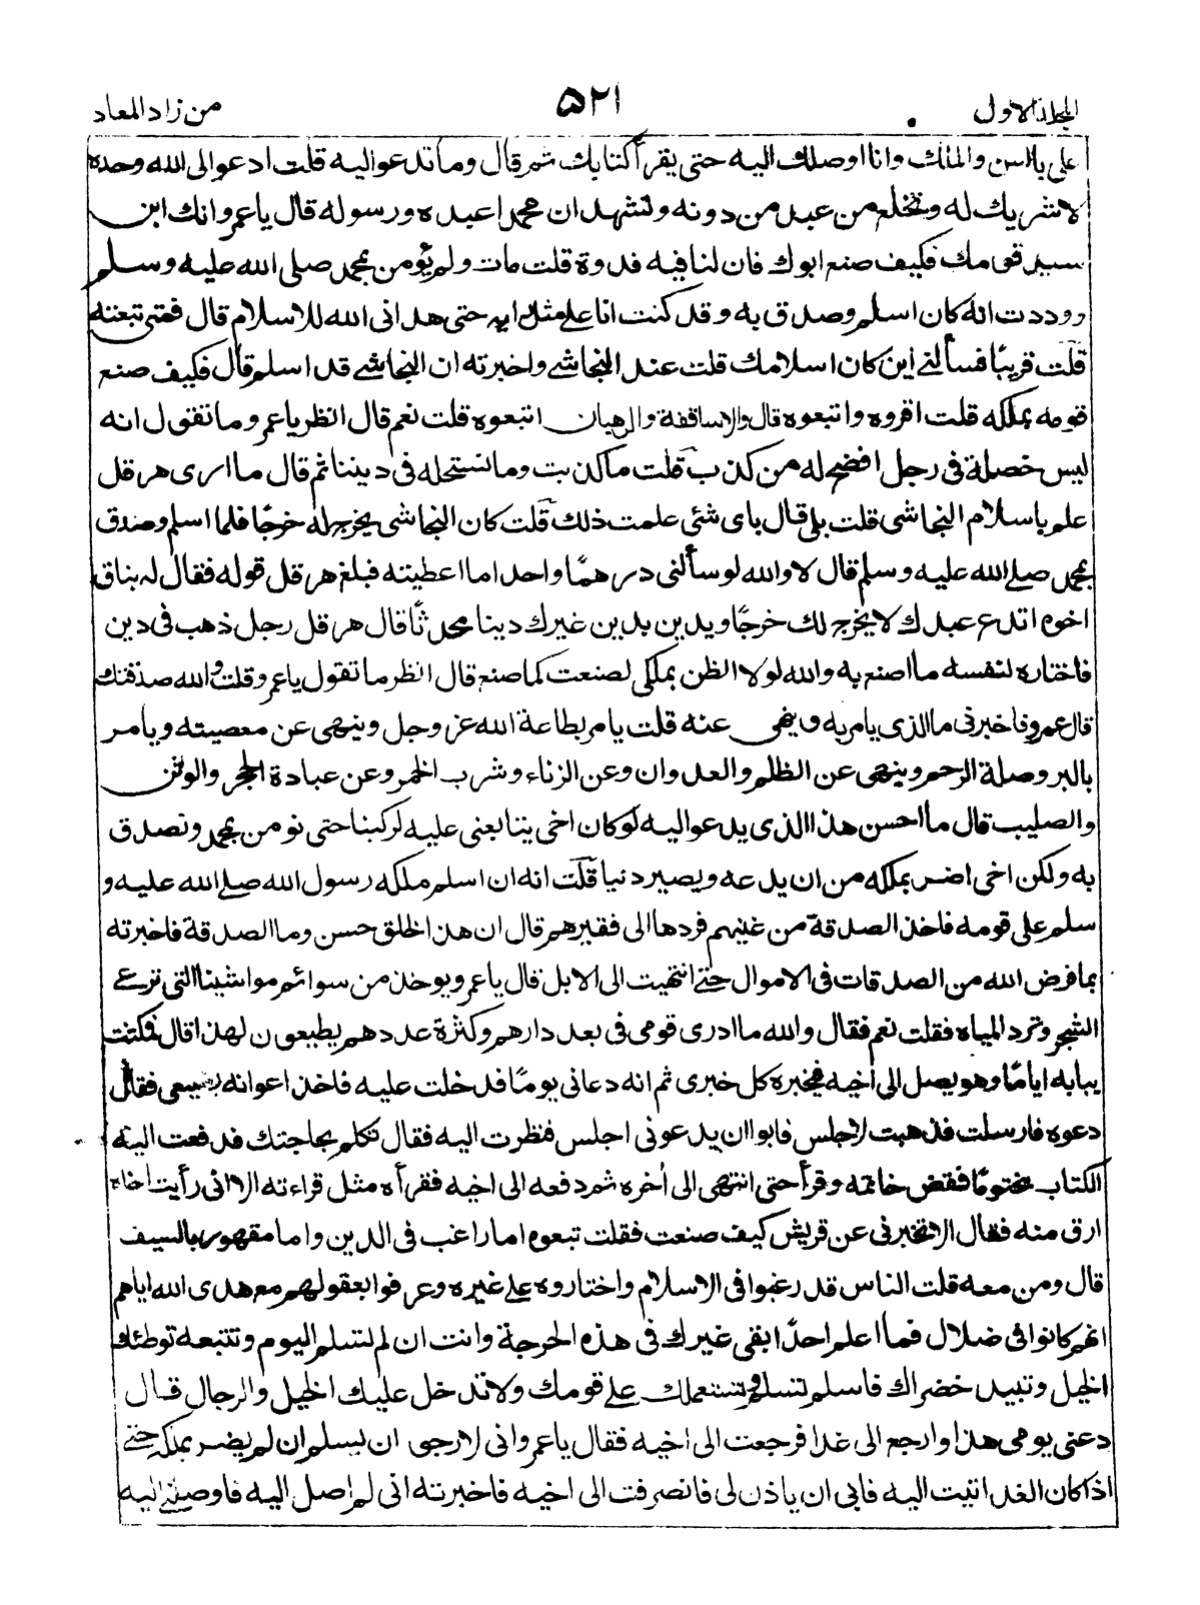 المجلد الاول
٥٢١
من زاد المعاد
على بالسن والملك وانا اوصلك اليه حتى يقرأ كتابك ثم قال وما تدعو اليه قلت ادعو الى الله وحده
لا شريك له وتخلع من عبد من دونه وتشهد ان محمدا عبده ورسوله قال يا عمرو انك ابن
سيد قومك فكيف صنع ابوك فان لنا فيه قدوة قلت مات ولم يؤمن بمحمد صلى الله عليه وسلم
ووددت انه كان اسلم وصدق به وقد كنت انا على مثل رايه حتى هدانى الله للاسلام قال فمتى تبعته
قلت قريبًا فسألنى اين كان اسلامك قلت عند النجاشى واخبرته ان النجاشى قد اسلم قال فكيف صنع
قومه بملكه قلت اقروه واتبعوه قال والاساقفة والرهبان اتبعوه قلت نعم قال انظر يا عمرو ما تقول انه
ليس خصلة فى رجل افضح له من كذب قلت ما كذبت وما نستحله فى ديننا ثم قال ما ارى هرقل
علم باسلام النجاشى قلت بلى قال باى شئى علمت ذلك قلت كان النجاشى يخرج له خرجًا فلما اسلم وصدق
بمحمد صلى الله عليه وسلم قال لا والله لو سألنى درهمًا واحدا ما اعطيته فبلغ هرقل قوله فقال له بناق
اخوه اتدع عبدك لا يخرج لك خرجًا ويدين بدين غيرك دينا محدثًا قال هرقل رجل ذهب فى دين
فاختاره لنفسه ما اصنع به والله لولا الظن بملكى لصنعت كما صنع قال انظر ما تقول يا عمرو قلت والله صدقتك
قال عمرو فاخبرنى ما الذى يامر به وينهى عنه قلت يامر بطاعة الله عز وجل وينهى عن معصيته ويامر
بالبر وصلة الرحم وينهى عن الظلم والعدوان وعن الزناء وشرب الخمر وعن عبادة الحجر والوثن
والصليب قال ما احسن هذا الذى يدعو اليه لو كان اخى يتابعنى عليه لركبنا حتى نومن بمحمد ونصدق
به ولكن اخى اضر بملكه من ان يدعه ويصير دنيا قلت انه ان اسلم ملكه رسول الله صلى الله عليه و
سلم على قومه فاخذ الصدقة من غنيهم فردها الى فقيرهم قال ان هذا الخلق حسن وما الصدقة فاخبرته
بما فرض الله من الصدقات فى الاموال حتى انتهيت الى الابل قال يا عمرو يوخذ من سوائم مواشينا التى ترعى
الشجر وترد المياه فقلت نعم فقال والله ما ادرى قومى فى بعد دارهم وكثرة عددهم يطيعون لهذا قال فمكثت
ببابه ايامًا وهو يصل الى اخيه فيخبره كل خبرى ثم انه دعانى يومًا فدخلت عليه فاخذ اعوانه بضبعى فقال
دعوه فارسلت فذهبت لاجلس فابوا ان يدعونى اجلس فنظرت اليه فقال تكلم بحاجتك فدفعت اليه
الكتاب مختومًا ففض خاتمه وقرأ حتى انتهى الى أخره ثم دفعه الى اخيه فقرأه مثل قراءته الا انى رأيت اخاه
ارق منه فقال الا تخبرنى عن قريش كيف صنعت فقلت تبعوه اما راغب فى الدين واما مقهور بالسيف
قال ومن معه قلت الناس قد رغبوا فى الاسلام واختاروه على غيره وعرفوا بعقولهم مع هدى الله اياهم
انهم كانوا فى ضلال فما اعلم احدًا بقى غيرك فى هذه الحرجة وانت ان لم تسلم اليوم وتتبعه توطئك
الخيل وتبيد خضراك فاسلم تسلم وتستعملك على قومك ولا تدخل عليك الخيل والرجال قال
دعنى يومى هذا وارجع الى غدا فرجعت الى اخيه فقال يا عمرو انى لارجى ان يسلم ان لم يضر بملكه حتى
اذا كان الغد اتيت اليه فابى ان ياذن لى فانصرفت الى اخيه فاخبرته انى لم اصل اليه فاوصلنى اليه